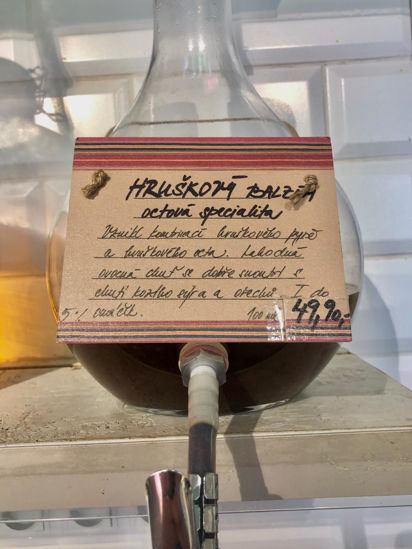 HRUŠKOVÝ BALZAM
octová specialita
Vznikl kombinací hruškového pyré
a hruškového octa. Lahodná
ovocná chuť se dobře snoubí s
chutí kozího sýra a ořechů. I do
omáček.
5% 100 ml 49,90,-